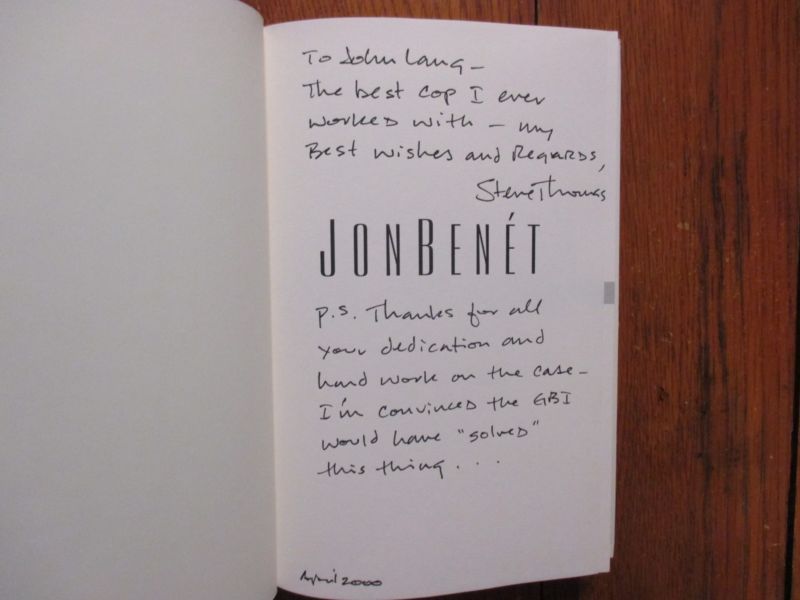 To John Lang –
The best cop I ever
worked with – my
Best wishes and Regards,
Steve Thomas
JONBENÉT
P.S. Thanks for all
your dedication and
hard work on the case –
I'm convinced the GBI
would have "solved"
this thing . . .
April 2000